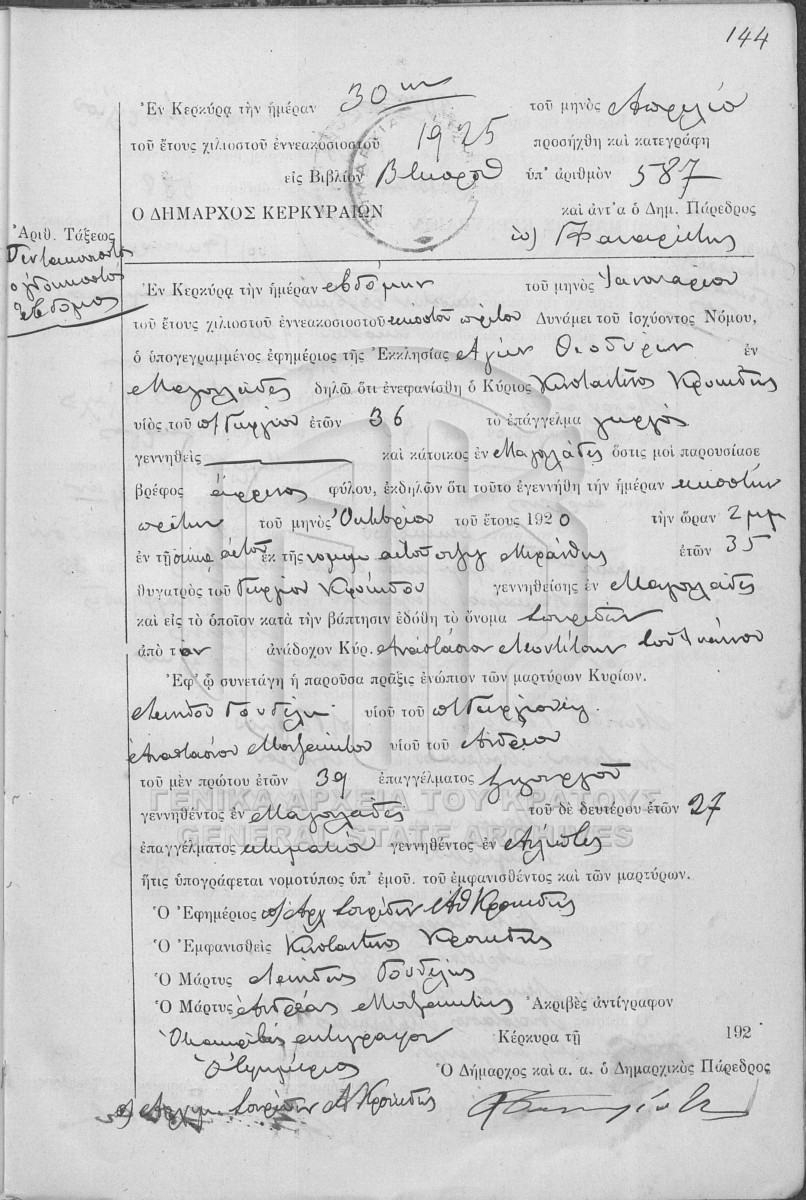 144
Ἐν Κερκύρᾳ τὴν ἡμέραν 30ην τοῦ μηνὸς Απριλίου
τοῦ ἔτους χιλιοστοῦ ἐννεακοσιοστοῦ 1925 προσήχθη καὶ κατεγράφη
εἰς Βιβλίον ὑπ' ἀριθμὸν 587
Ο ΔΗΜΑΡΧΟΣ ΚΕΡΚΥΡΑΙΩΝ καὶ ἀντ'α ὁ Δημ. Πάρεδρος
Ἀριθ. Τάξεως
Πεντακοσιοστὸς
ογδοηκοστὸς
εβδομος
Ἐν Κερκύρᾳ τὴν ἡμέραν εβδόμην τοῦ μηνὸς Ιανουαρίου
τοῦ ἔτους χιλιοστοῦ ἐννεακοσιοστοῦ εικοστοῦ πρώτου Δυνάμει τοῦ ἰσχύοντος Νόμου,
ὁ ὑπογεγραμμένος ἐφημέριος τῆς Ἐκκλησίας Αγίων Θεοδώρων ἐν
Μαγουλάδες δηλῶ ὅτι ἐνεφανίσθη ὁ Κύριος Κωνσταντῖνος Κροκίδης
υἱὸς τοῦ π/ Γεωργίου ἐτῶν 36 τὸ ἐπάγγελμα γεωργὸς
γεννηθεὶς καὶ κάτοικος ἐν Μαγουλάδες ὅστις μοὶ παρουσίασε
βρέφος ἄρρενος φύλου, ἐκδηλῶν ὅτι τοῦτο ἐγεννήθη τὴν ἡμέραν εικοστὴν
πρώτην τοῦ μηνὸς Οκτωβρίου τοῦ ἔτους 1920 τὴν ὥραν 2 μμ
ἐν τῇ οικια αὐτοῦ ἐκ τῆς νομιμου αὐτοῦ συζυγ ἐτῶν 35
θυγατρὸς τοῦ Γεωργίου Κροκίδου γεννηθείσης ἐν Μαγουλάδες
καὶ εἰς τὸ ὁποῖον κατὰ τὴν βάπτισιν ἐδόθη τὸ ὄνομα Σπυρίδων
ἀπὸ τὸν ἀνάδοχον Κύρ. Αναστάσιον τοῦ
Ἐφ' ᾧ συνετάγη ἡ παροῦσα πρᾶξις ἐνώπιον τῶν μαρτύρων Κυρίων.
Γουδέλη υἱοῦ τοῦ π/ Γεωργίου
Αναστασίου υἱοῦ τοῦ Ανδρέου
τοῦ μὲν πρώτου ἐτῶν 39 ἐπαγγέλματος
ΓΕΝΙΚΑ ΑΡΧΕΙΑ ΤΟΥ ΚΡΑΤΟΥΣ
γεννηθέντος ἐν Μαγουλάδες τοῦ δὲ δευτέρου ἐτῶν 27
GENERAL STATE ARCHIVES
ἐπαγγέλματος κτηματίου γεννηθέντος ἐν
ἥτις ὑπογράφεται νομοτύπως ὑπ' ἐμοῦ. τοῦ ἐμφανισθέντος καὶ τῶν μαρτύρων.
Ὁ Ἐφημέριος Σπυρίδων Κροκίδης
Ὁ Ἐμφανισθεὶς Κωνσταντῖνος Κροκίδης
Ὁ Μάρτυς Γουδέλης
Ὁ Μάρτυς Ανδρέας Ἀκριβὲς ἀντίγραφον
αντιγραφον Κέρκυρα τῇ 192
Ὁ Εφημέριος Ὁ Δήμαρχος καὶ α. α. ὁ Δημαρχικὸς Πάρεδρος
Σπυρίδων Κροκίδης